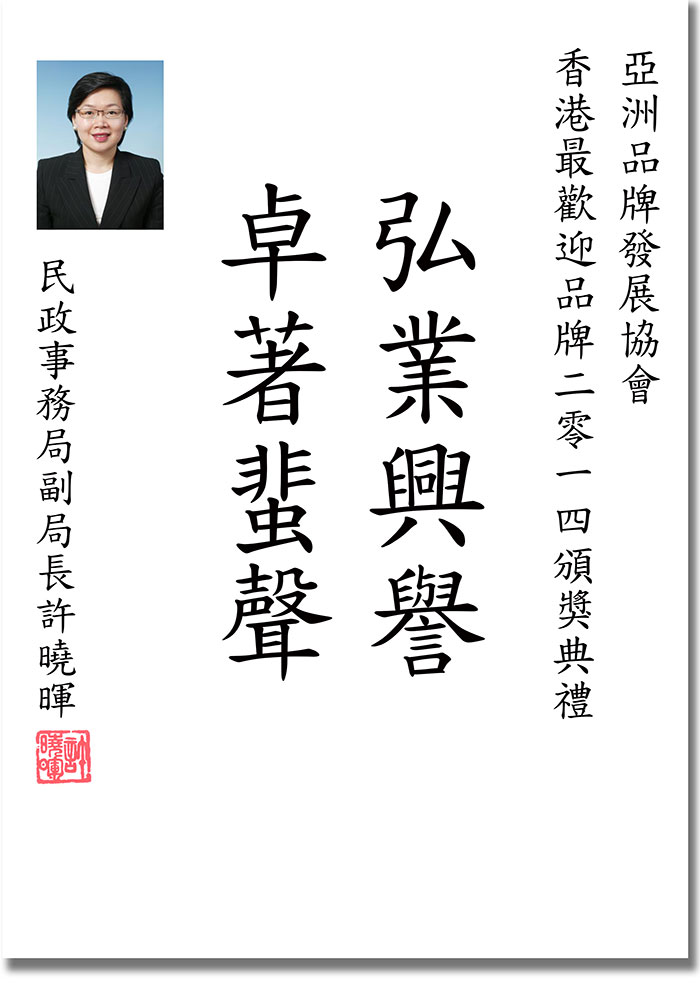 亞洲品牌發展協會
香港最歡迎品牌二零一四頒獎典禮
弘業興譽
卓著蜚聲
民政事務局副局長許曉暉
許曉暉